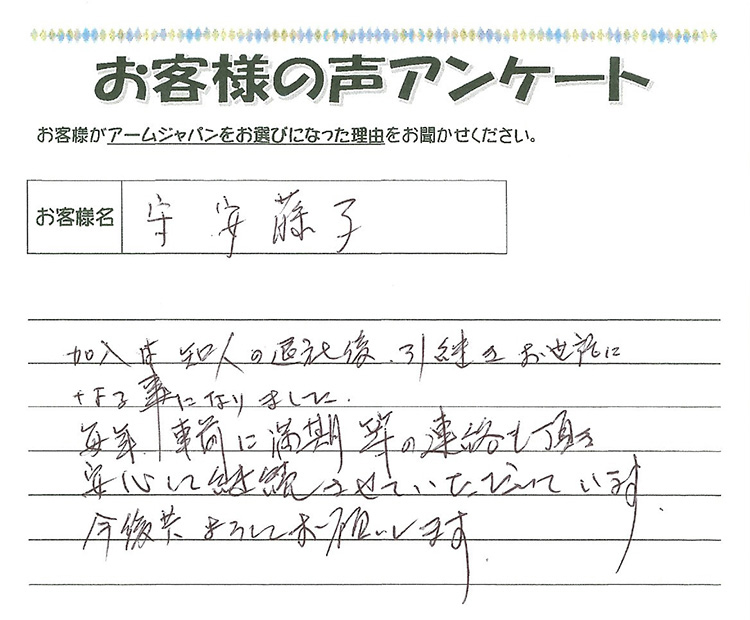 お客様の声アンケート
お客様がアームジャパンをお選びになった理由をお聞かせください。
お客様名
守安藤子
加入は知人の退社後、引継をお世話に
なる事になりました。
毎年、事前に満期等の連絡も頂き
安心して継続させていただいています。
今後共よろしくお願いします。